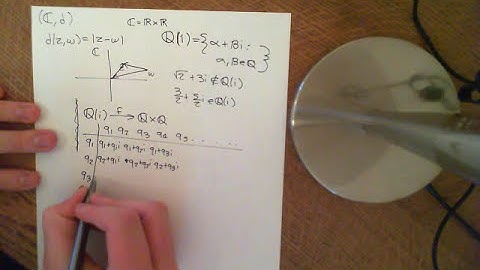 (ℂ, d) ℂ = ℝ×ℝ
d(z,w) = |z-w|
ℚ(i) = {α+βi :
α,β∈ℚ}
ℂ
z
w
√2 + 3i ∉ ℚ(i)
3/2 + 5/2 i ∈ ℚ(i)
ℚ(i) →f ℚ×ℚ
q₁ q₂ q₃ q₄ q₅ . . . . . .
q₁ q₁+q₁i q₁+q₂i q₁+q₃i
q₂ q₂+q₁i q₂+q₂i q₂+q₃i
q₃